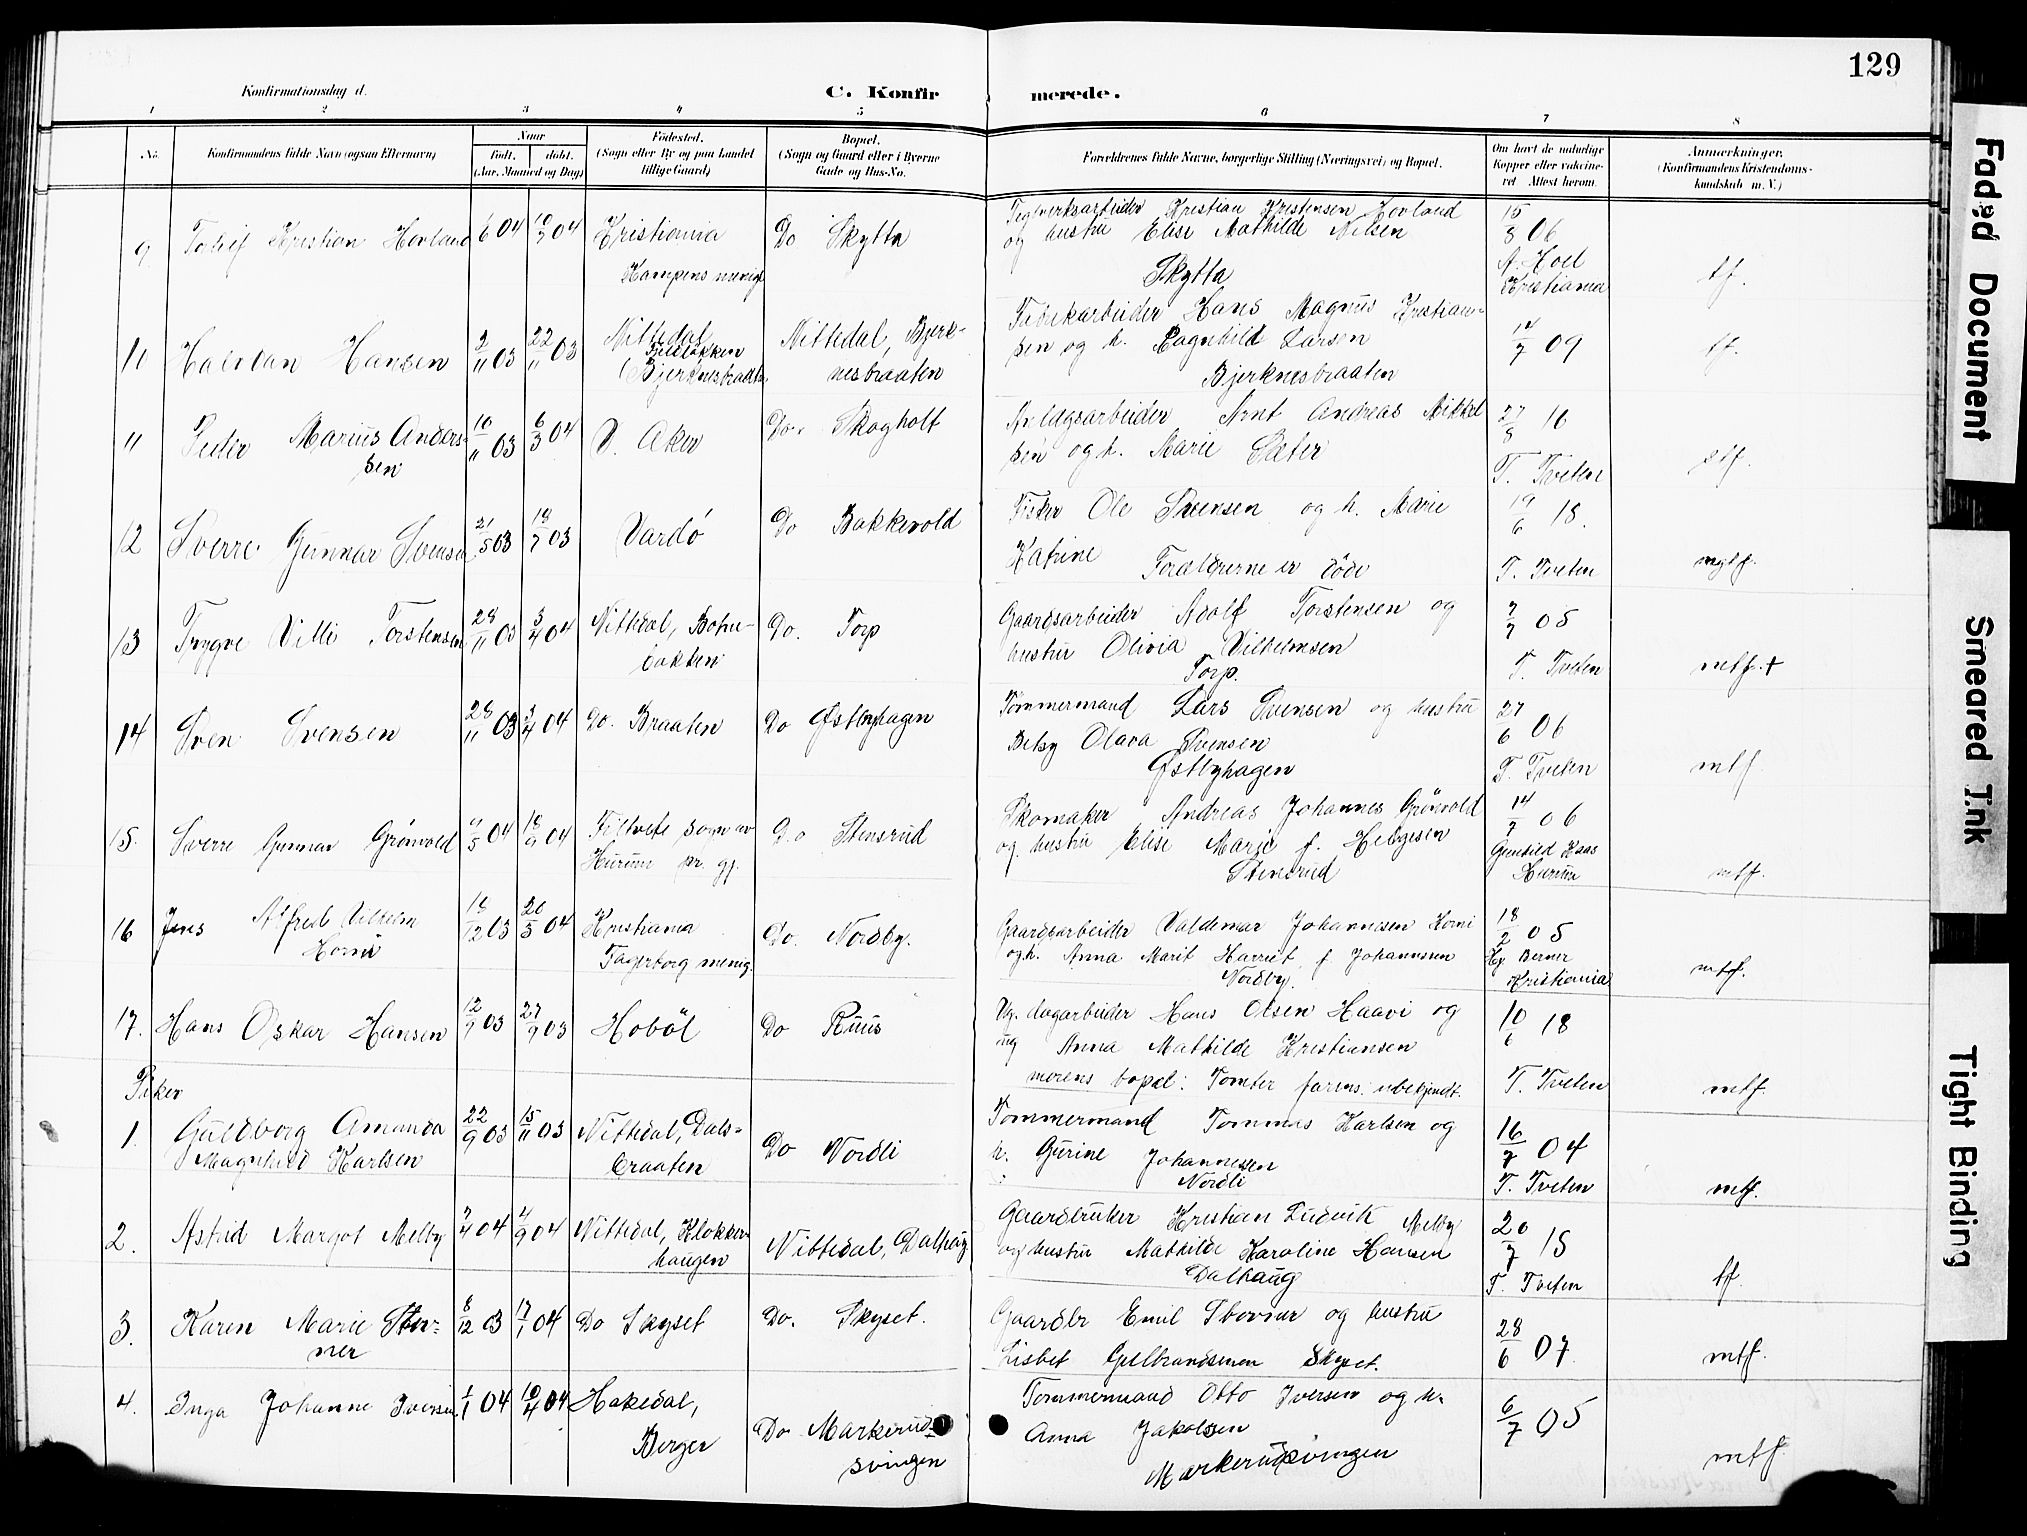 129
Konfirmationsdag d.
C. Konfir merede.
1 2 3 4 5 6 7 8
No. Konfirmandens fulde Navn (ogsaa Efternavn)
Naar
født. døbt.
(Aar, Maaned og Dag)
Fødested.
(Sogn eller By og paa Landet
tillige Gaard)
Bopæl.
(Sogn og Gaard eller i Byerne
Gade og Hus-No.
Forældrenes fulde Navne, borgerlige Stilling (Næringsvei) og Bopæl.
Om havt de naturlige
Kopper eller vaccine-
ret Attest herom.
Anmærkninger.
(Konfirmandens Kristendoms-
kundskab m. V.)
9 Kristian Hovland 6 04 10/7 04 Kristiania Do Skytta Teglverksarbeider Kristian Kristensen Hovland 15/3 06
Kampens menigh. og hustru Elise Mathilde Nilsen A. Hoel
Skytta Kristiania tf.
11 Halvdan Hansen 2/11 03 22/11 03 Nittedal, Nittedal, Bjerk- Fabrikarbeider Hans Magnus Kristian- 14/7 09 tf.
Bjerknesbraaten nesbraaten sen og h. Ragnhild Larsen
Bjerknesbraaten
11 Peder Marius Anders- 10/11 03 6/3 04 V. Aker Do. Skogholt Anlægsarbeider Arnt Andreas Mikkel 27/8 16
sen sen og h. Marie Sæter T. Tveten stf.
12 Sverre Gunnar Svensen 21/5 03 18/7 03 Vardö Do Bakkevold Fisker Ole Svensen og h. Marie 19/6 18.
Katrine Forældrerne er döde T. Tveten mgtf.
13 Trygve Villi Torstensen 28/11 03 3/4 04 Nittedal, Botne- Do. Torp Gaardsarbeider Adolf Torstensen og 7/7 05
bakken hustru Olivia Vilhelmsen T. Tveten mtf. +
Torp.
14 Sven Svensen 28/11 03 3/4 04 Do. Braaten Do Østbyhagen Tömmermand Lars Svensen og hustru 27/6 06
Betsy Olava Svensen
Østbyhagen T. Tveten mtf.
15. Sverre Gunnar Grönvold 4/5 04 18/9 04 Filtvet sogn av Do Stensrud Skomaker Andreas Johannes Grönvold 14/7 06
Hurum pr. gj. og hustru Elise Marie f. Helgesen Gunhild Kaas
Stensrud Hurum mtf.
16 Jens Alfred Vilhelm 18/12 03 20/5 04 Kristiania Do. Nordby. Gaardsarbeider Valdemar Johannesen Horni 18/2 05
Horni Fagerborg menig. og h. Anna Marit Harriet f Johannesen Hj Berner
Nordby. Kristiania mtf.
17. Hans Oskar Hansen 12/7 03 27/9 03 Hoböl Do Ruus Ug. dagarbeider Hans Olsen Haavi og 10/6 18
ug Anna Mathilde Kristiansen
morens bopæl: Tomter farens ubekjendt. T. Tveten mtf.
Piker
1. Guldborg Amanda 22/9 03 15/11 03 Nittedal, Dals- Do Nordli Tömmermand Tommas Karlsen og 16/7 04
Magnhild Karlsen braaten h. Gurine Johannesen
Nordli T. Tveten mtf.
2. Astrid Margot Melby 7/4 04 4/9 04 Nittedal, Klokker- Nittedal, Dalhaug Gaardbruker Kristian Ludvik Melby 20/7 15
haugen og hustru Mathilde Karoline Hansen
Dalhaug T. Tveten tf.
3. Karen Marie Stor- 8/12 03 17/1 04 Do Skyset Do. Skyset. Gaardbr Emil Storner og hustru 28/6 07.
ner Lisbet Gulbrandsenen Skyset. mtf.
4. Inga Johanne Iversen 1/1 04 10/4 04 Hakedal, Do Markerud- Tömmermand Otto Iversen og h. 6/7 05
Berger svingen Anna Jakobsen
Markerudsvingen mtf.
Faded Document
Smeared Ink
Tight Binding